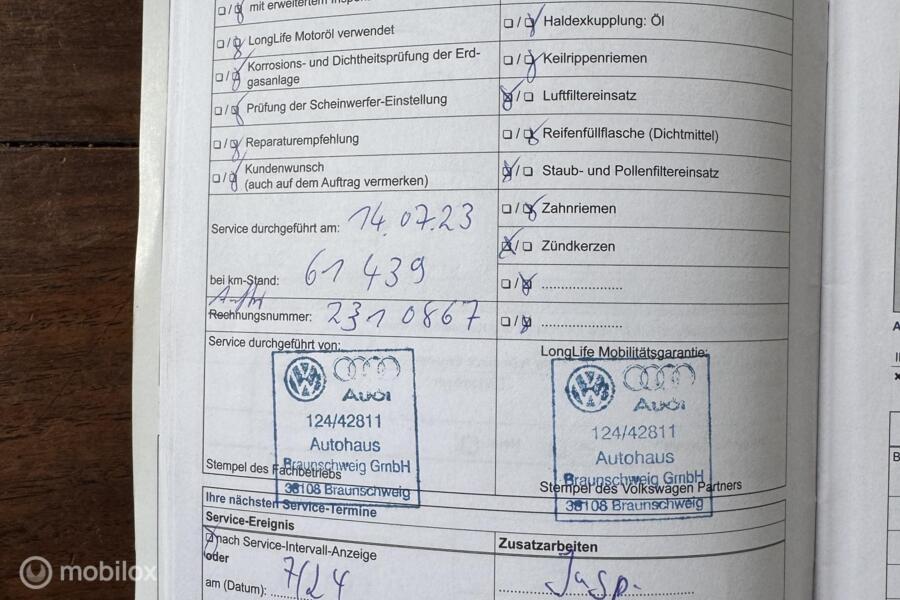 mit erweitertem
LongLife Motoröl verwendet
Korrosions- und Dichtheitsprüfung der Erd-
gasanlage
Prüfung der Scheinwerfer-Einstellung
Reparaturempfehlung
Kundenwunsch
(auch auf dem Auftrag vermerken)
Service durchgeführt am: 14.07.23
bei km-Stand: 61 439
Rechnungsnummer: 2310867
Service durchgeführt von:
Audi
124/42811
Autohaus
Braunschweig GmbH
Stempel des Fachbetriebs
38108 Braunschweig
Haldexkupplung: Öl
Keilrippenriemen
Luftfiltereinsatz
Reifenfüllflasche (Dichtmittel)
Staub- und Pollenfiltereinsatz
Zahnriemen
Zündkerzen
LongLife Mobilitätsgarantie:
Audi
124/42811
Autohaus
Braunschweig GmbH
Stempel des Volkswagen Partners
38108 Braunschweig
Ihre nächsten Service-Termine
Service-Ereignis
nach Service-Intervall-Anzeige
oder
am (Datum): 7/24
Zusatzarbeiten
Jnsp.
mobilox